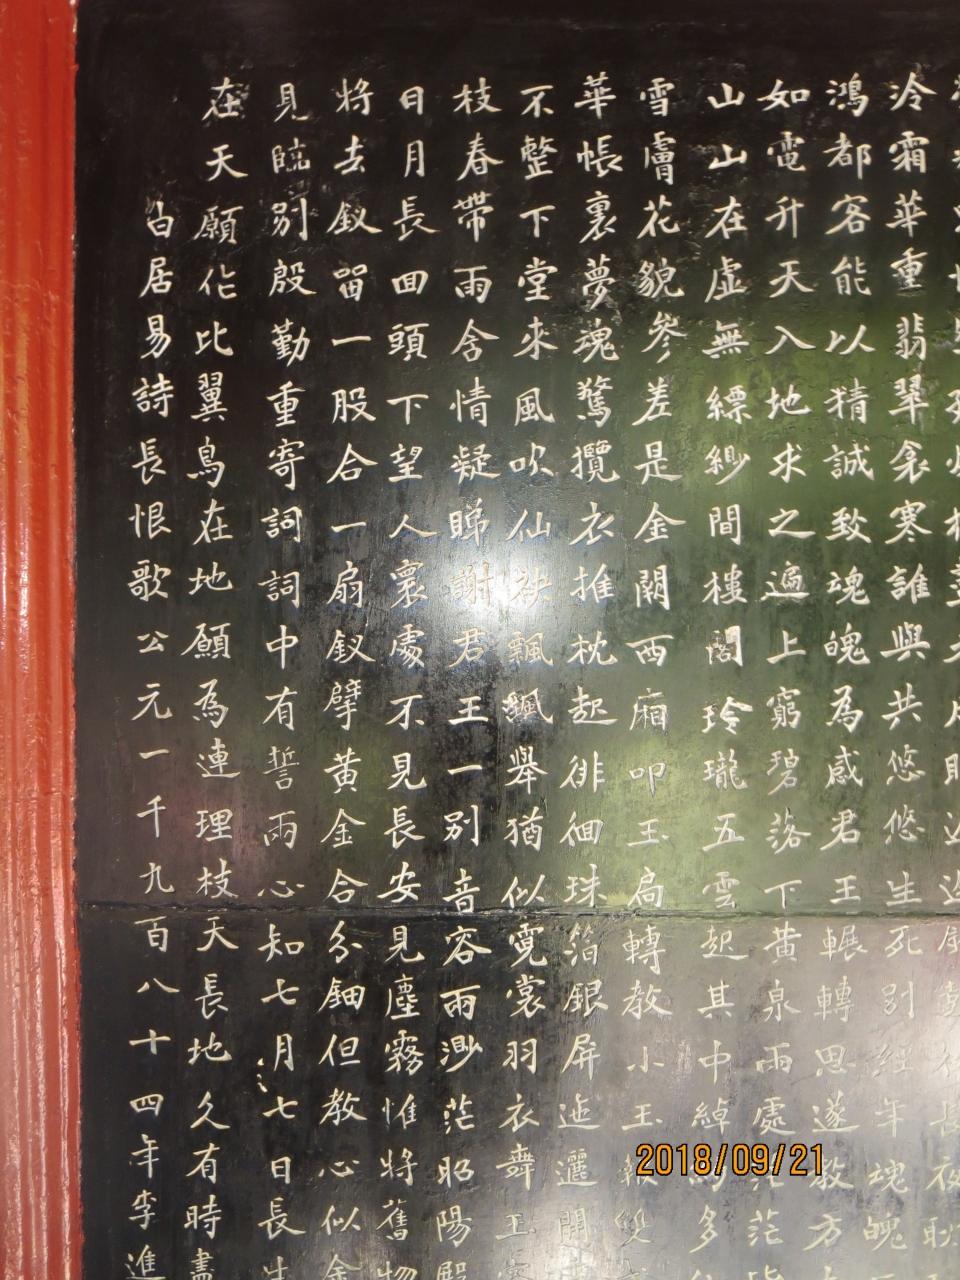 冷霜華重翡翠衾寒誰與共悠悠生死別經年魂魄
鴻都客能以精誠致魂魄為感君王輾轉思遂教方
如電升天入地求之遍上窮碧落下黃泉兩處茫茫
山山在虛無縹緲間樓閣玲瓏五雲起其中綽約多
雪膚花貌參差是金闕西廂叩玉扃轉教小玉報雙
華帳裏夢魂驚攬衣推枕起徘徊珠箔銀屏迤邐開
不整下堂來風吹仙袂飄飄舉猶似霓裳羽衣舞玉容
枝春帶雨含情凝睇謝君王一別音容兩渺茫昭陽殿
日月長回頭下望人寰處不見長安見塵霧惟將舊物
將去釵留一股合一扇釵擘黃金合分鈿但教心似金
見臨別殷勤重寄詞詞中有誓兩心知七月七日長生
在天願作比翼鳥在地願為連理枝天長地久有時盡
白居易詩長恨歌公元一千九百八十四年李進
2018/09/21